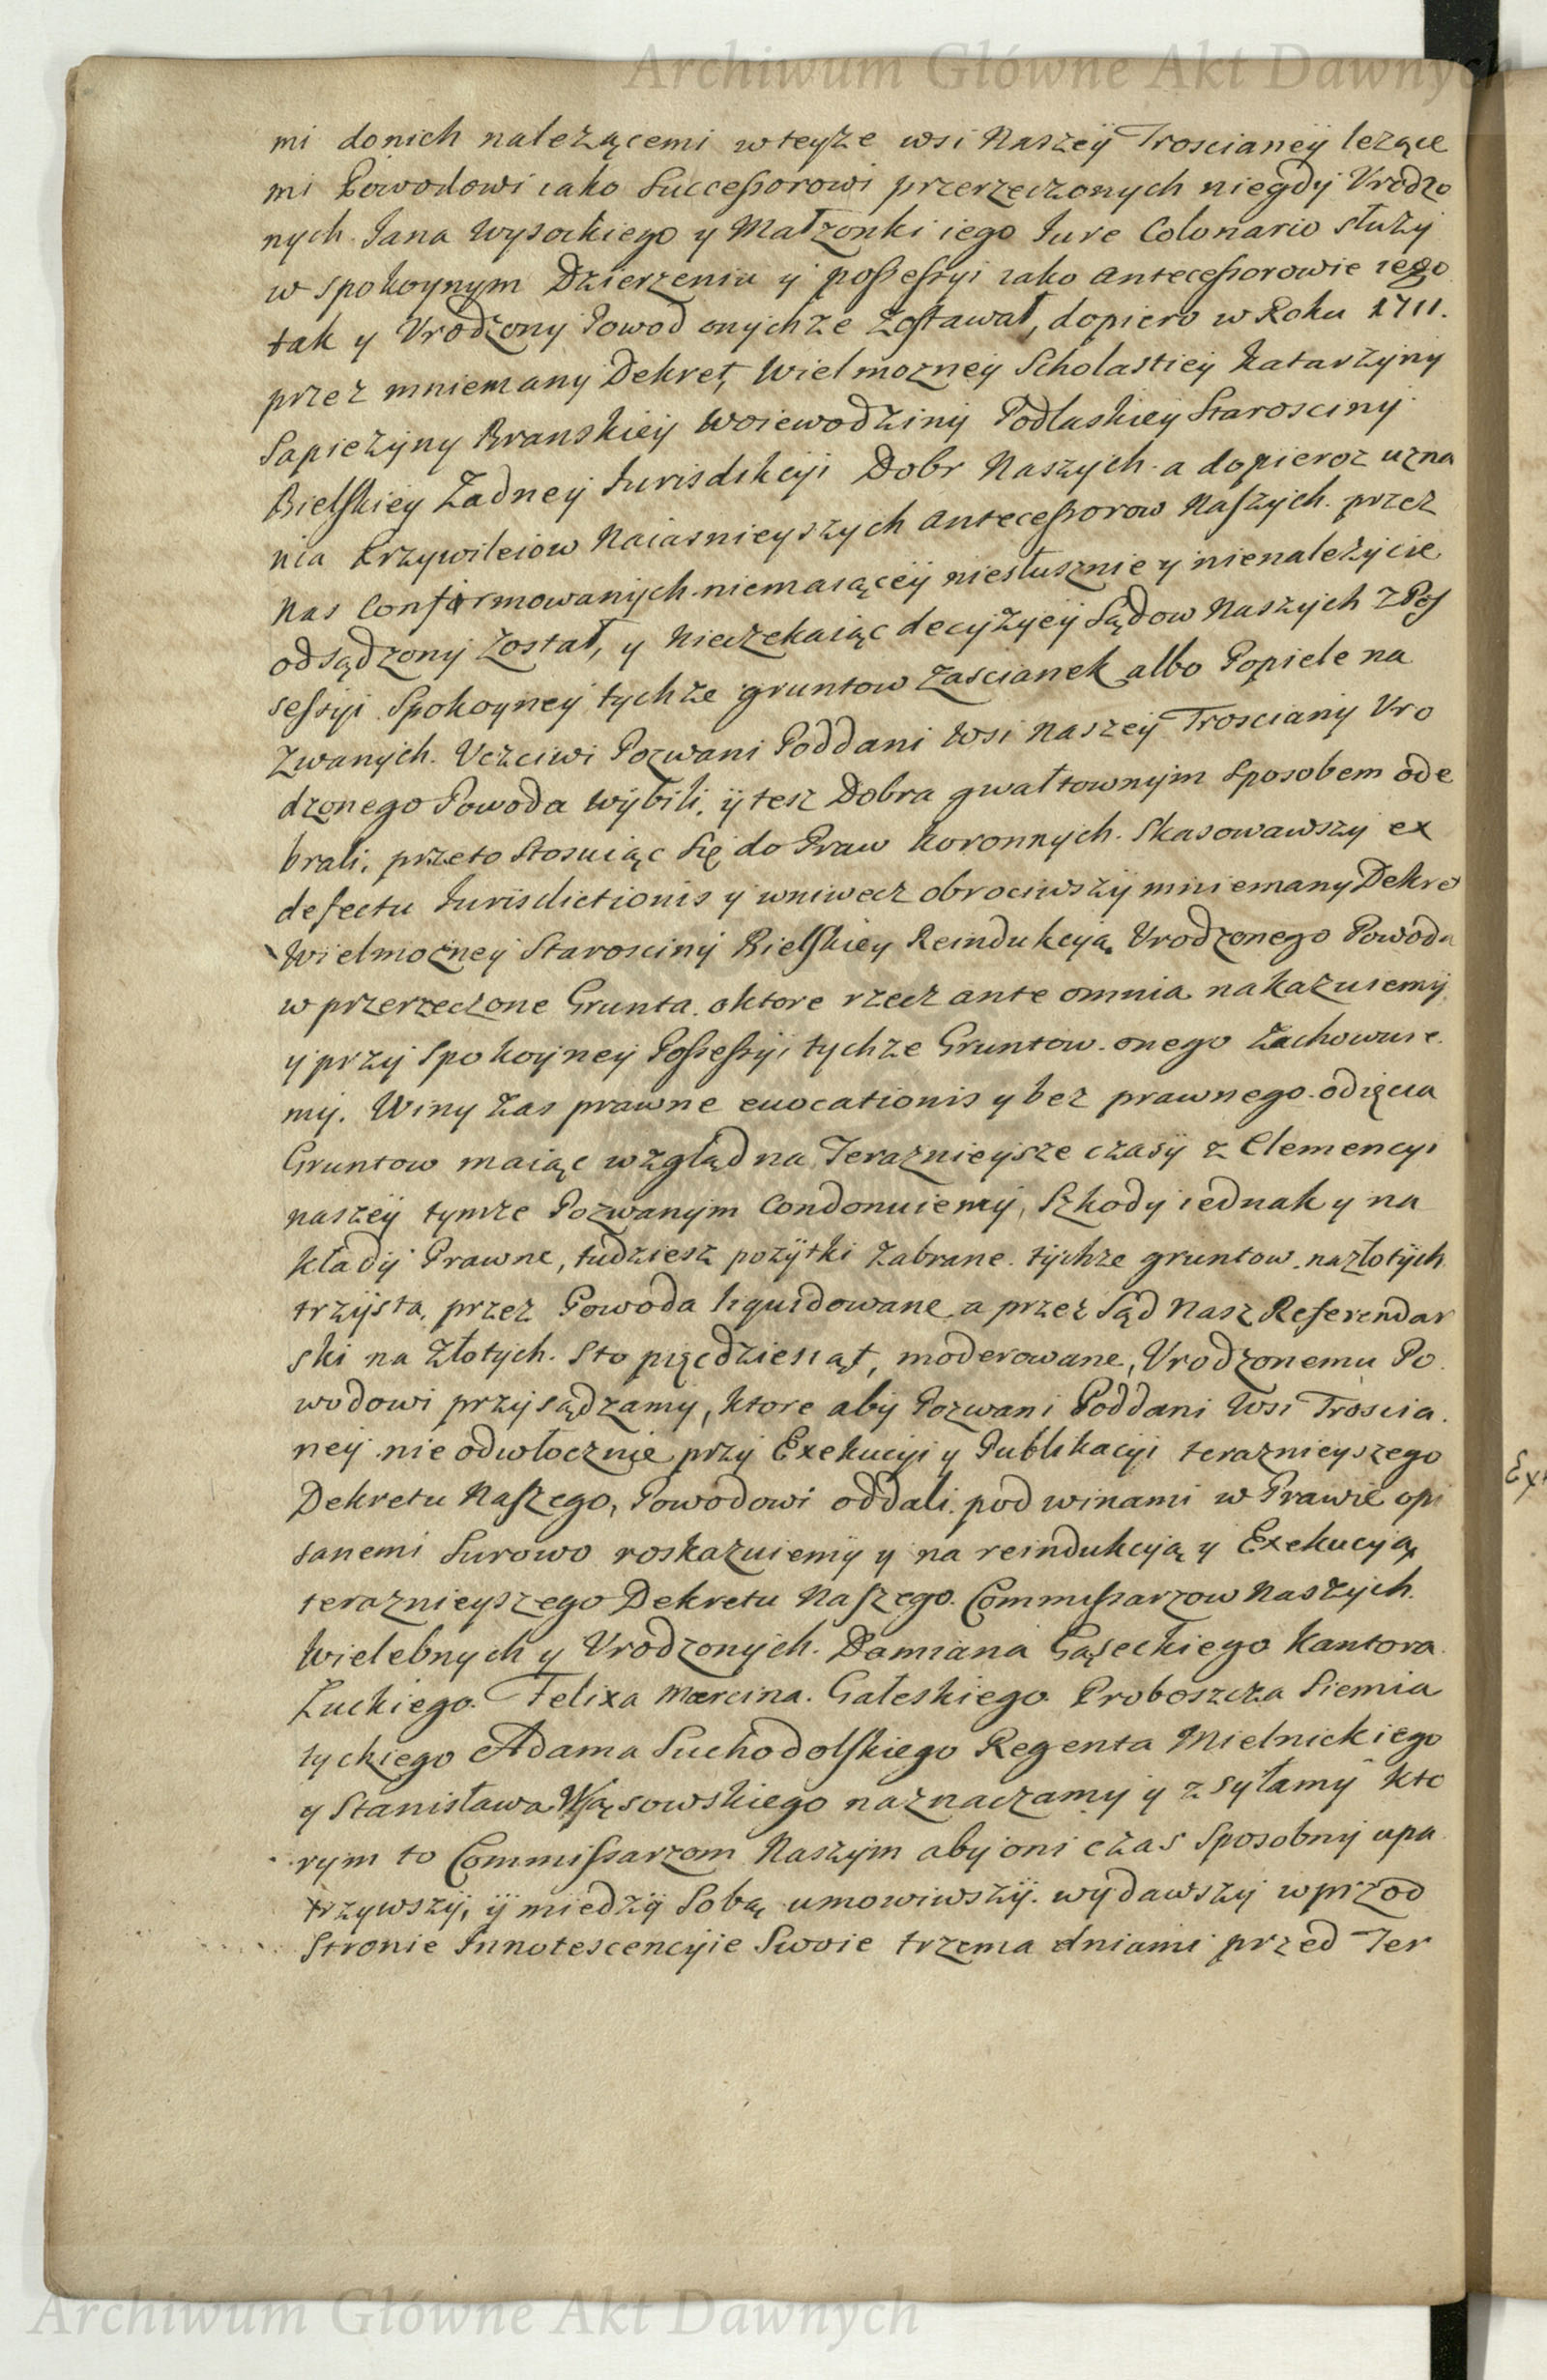 Archiwum Główne Akt Dawnych
mi donich należącemi wteyże wsi Naszeÿ Troscianeÿ leżące
mi Powodowi iako Successorowi przerzeczonych niegdÿ Vrodzo
nych Jana Wysockiego y Małżonki iego Jure Colonario służÿ
w spokoynym Dzierzeniu ÿ possessyi iako Antecessorowie iego
tak y Vrodzony Powod onychże zostawał, dopiero w Roku 1711.
przez mniemany Dekret, Wielmożneÿ Scholastiey Katarzÿnÿ
Sapieżÿny Branskiÿ Woiewodzinÿ Podlaskieÿ Starosciny
Bielskiey Zadneÿ Jurisdikcÿi Dobr Naszÿch. a dopieroz uzna
nia Przywileiow Naiasnieyszych Antecessorow Naszÿch. przez
Nas Confirmowanÿch niemaiąceÿ niesłusznie ÿ nienależycie
odsądzonÿ został, y Nieczekaiąc decyżÿeÿ Sądow Naszÿch z Pos
sessÿi Spokoyneÿ tychże gruntow Zascianek albo Popiele na
zwanÿch. Vczciwi Pozwani Poddani Wsi Naszeÿ Trosciany Vro
dzonego Powoda wÿbili, ÿ tesz Dobra gwałtownÿm Sposobem ode
brali, przeto Stosuiąc Się do Praw Koronnych. Skasowawszÿ ex
defectu Jurisdictionis ÿ wniwecz obrociwszÿ mniemany Dekret
Wielmożneÿ Staroscinÿ Bielskieÿ Reindukcyją Vrodzonego Powoda
w przerzeczone Grunta. oktore rzecz ante omnia nakazuiemÿ
y przÿ Spokoÿneÿ Possessÿi tychże Gruntow. onego Zachowuie
mÿ. Winy Zas prawne euocationis y bez prawnego odięcia
Gruntow maiąc wzgląd na Teraznieysze czasÿ z Clemencyi
naszeÿ tymże Pozwanÿm Condonuiemÿ, Szkodÿ iednak y na
kładÿ Prawne, tudziesz pożÿtki Zabrane tychże gruntow. na złotÿch
trzÿsta, przez Powoda liquidowane a przez Sąd Nasz Referendar
ski na Złotych. Sto pięcdziesiąt, moderowane, Vrodzonemu Po
wodowi przÿsądzamÿ, ktore abÿ Pozwani Poddani Wsi Troscia
neÿ nieodwłocznie przÿ Exekucÿi y Publikacÿi teraznieyszego
Dekretu Naszego, Powodowi oddali pod winami w Prawie opi
sanemi Surowo roskazuiemÿ y na reindukcÿą y Exekucÿą
teraznieyszego Dekretu Naszego. Commissarzow Naszÿch.
Wielebnych y Vrodzonÿch. Damiana Gąseckiego Kantora
Łuckiego. Felixa Marcina. Gałeskiego Proboszcza Siemia
tyckiego Adama Suchodolskiego Regenta Mielnickiego
y Stanisława Wąsowskiego naznaczamy y zsyłamÿ kto
rym to Commissarzom Naszÿm abÿ oni czas Sposobnÿ upa
trzÿwszÿ, ÿ miedzÿ Sobą umowiwszÿ. wÿdawszÿ wprzod
Stronie Innotescencyie Swoie trzema dniami przed Ter
Archiwum Główne Akt Dawnych